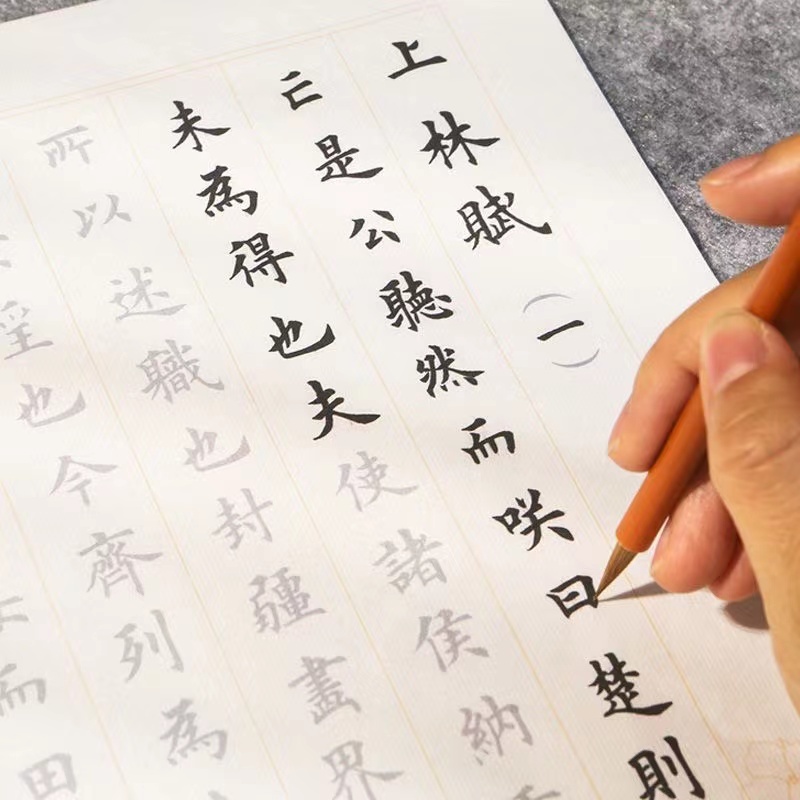 上林賦（一）
亡是公聽然而咲曰楚則
未為得也夫使諸侯納
所以述職也封疆畫界
淫也今齊列為
而田